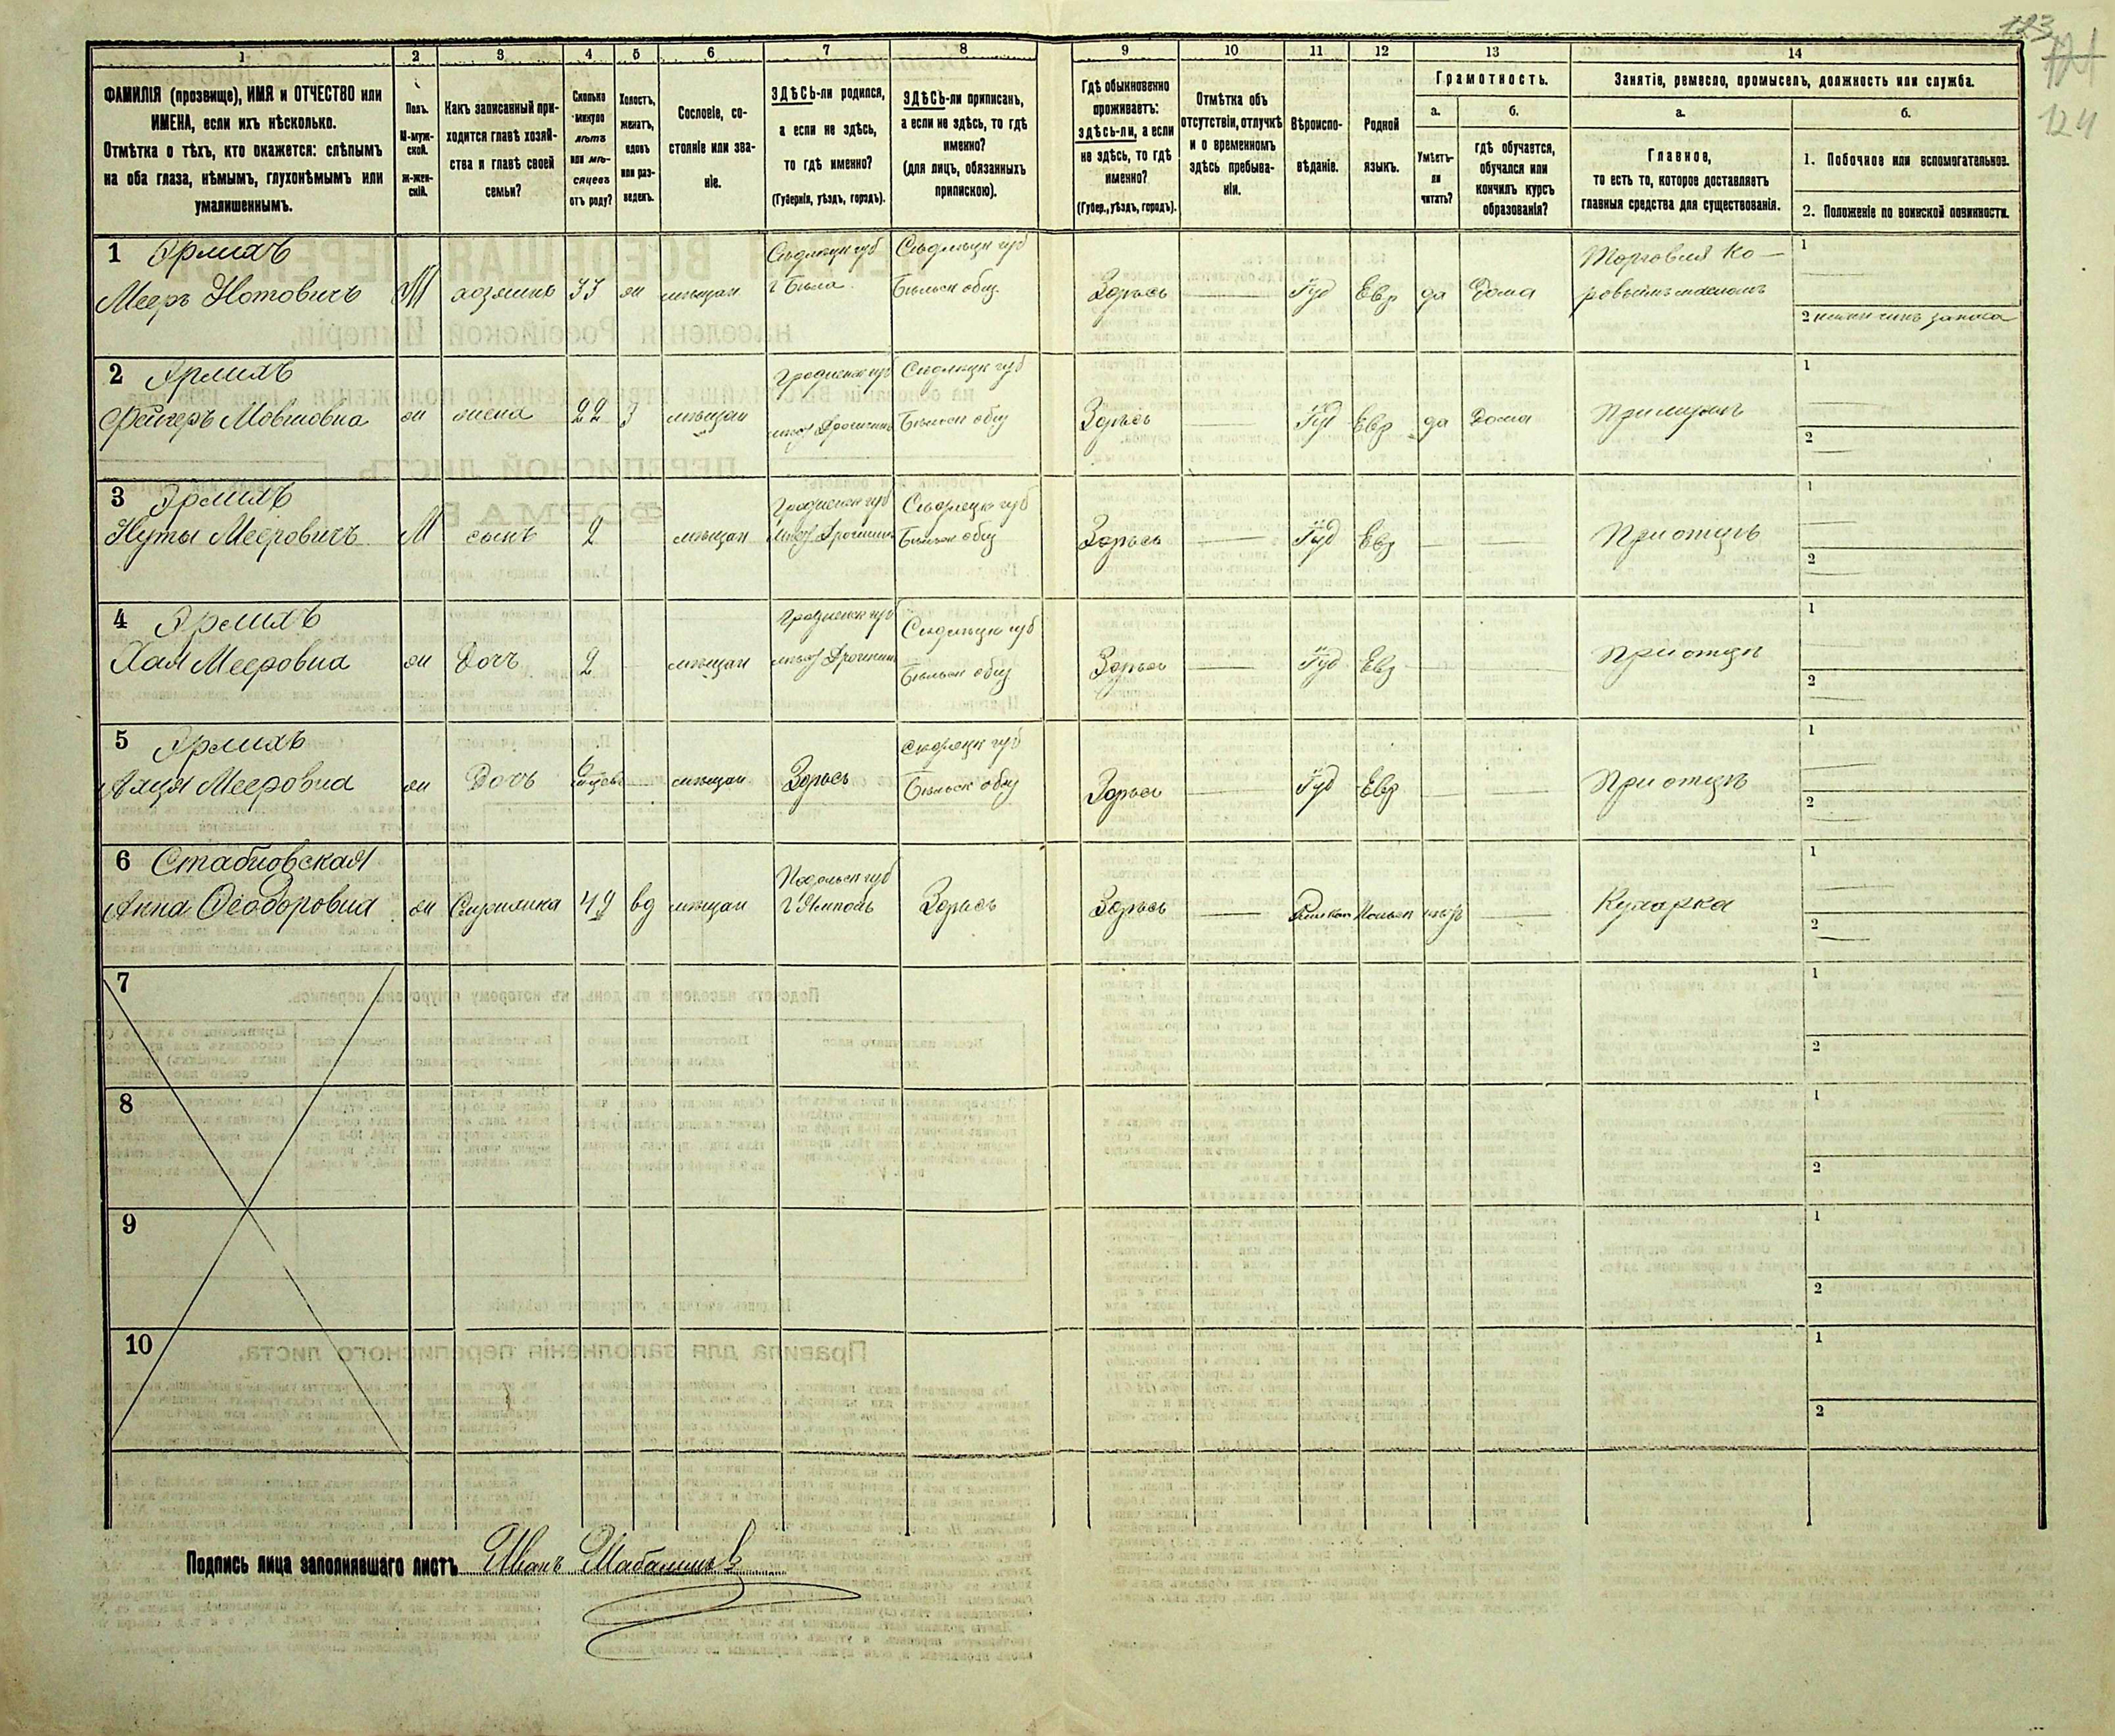 123
124
1 2 3 4 5 6 7 8 9 10 11 12 13 14
ФАМИЛІЯ (прозвище), ИМЯ и ОТЧЕСТВО или
ИМЕНА, если ихъ нѣсколько.
Отмѣтка о тѣхъ, кто окажется: слѣпымъ
на оба глаза, нѣмымъ, глухонѣмымъ или
умалишеннымъ.
Полъ.
М-муж-
ской.
ж-жен-
скій.
Какъ записанный при-
ходится главѣ хозяй-
ства и главѣ своей
семьи?
Сколько
минуло
лѣтъ
или мѣ-
сяцевъ
отъ роду?
Холостъ,
женатъ,
вдовъ
или раз-
веденъ.
Сословіе, со-
стояніе или зва-
ніе.
ЗДѢСЬ-ли родился,
а если не здѣсь,
то гдѣ именно?
(Губернія, уѣздъ, городъ).
ЗДѢСЬ-ли приписанъ,
а если не здѣсь, то гдѣ
именно?
(для лицъ, обязанныхъ
припискою).
Гдѣ обыкновенно
проживаетъ:
здѣсь-ли, а если
не здѣсь, то гдѣ
именно?
(Губер., уѣздъ, городъ).
Отмѣтка объ
отсутствіи, отлучкѣ
и о временномъ
здѣсь пребыва-
ніи.
Вѣроиспо-
вѣданіе.
Родной
языкъ.
Грамотность.
а.
Умѣетъ-
ли
читать?
б.
гдѣ обучается,
обучался или
кончилъ курсъ
образованія?
Занятіе, ремесло, промыселъ, должность или служба.
а.
Главное,
то есть то, которое доставляетъ
главныя средства для существованія.
б.
1. Побочное или вспомогательное.
2. Положеніе по воинской повинности.
1 Ярлихъ Сѣдлецк губ Сѣдлецк губ Торговля Ко- 1
Мееръ Нотовичъ М хозяинъ 33 ж мѣщан г Бѣла Бѣльск общ Здѣсь Іуд Евр да дома ровьимъ масломъ
2 чинъ запаса
2 Ярлихъ Гродненск губ Сѣдлецк губ 1
Мовшовна ж жена 22 З мѣщан мѣст Дрогичинъ Бѣльск общ Здѣсь Іуд Евр да дома При мужѣ
2
3 Ярлихъ Гродненск губ Сѣдлецк губ 1
Нуты Мееровичъ М сынъ 2 мѣщан мѣст Дрогичинъ Бѣльск общ Здѣсь Іуд Евр При отцѣ
2
4 Ярлихъ Гродненск губ Сѣдлецк губ 1
Хая Мееровна ж Дочь 2 мѣщан мѣст Дрогичинъ Бѣльск общ Здѣсь Іуд Евр При отцѣ
2
5 Ярлихъ Сѣдлецк губ 1
Мееровна ж Дочь 6 мѣсяцевъ мѣщан Здѣсь Бѣльск общ Здѣсь Іуд Евр При отцѣ
2
6 Подольск губ 1
Анна Ѳеодоровна ж 49 вд мѣщан г Ямполь Здѣсь Здѣсь Римкат Польск Кухарка
2
7 1
2
8 1
2
9 1
2
10 1
2
Подпись лица заполнявшаго листъ Иванъ